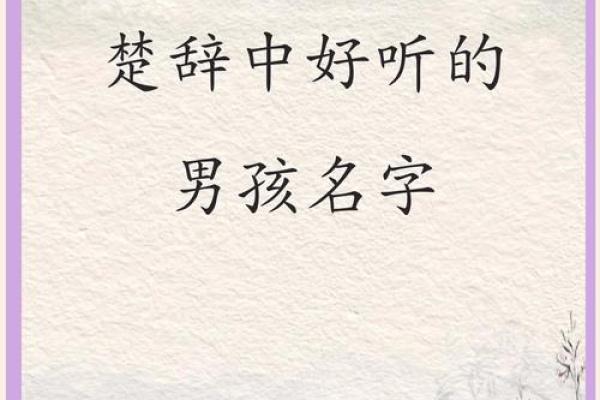 楚辞中好听的
男孩名字